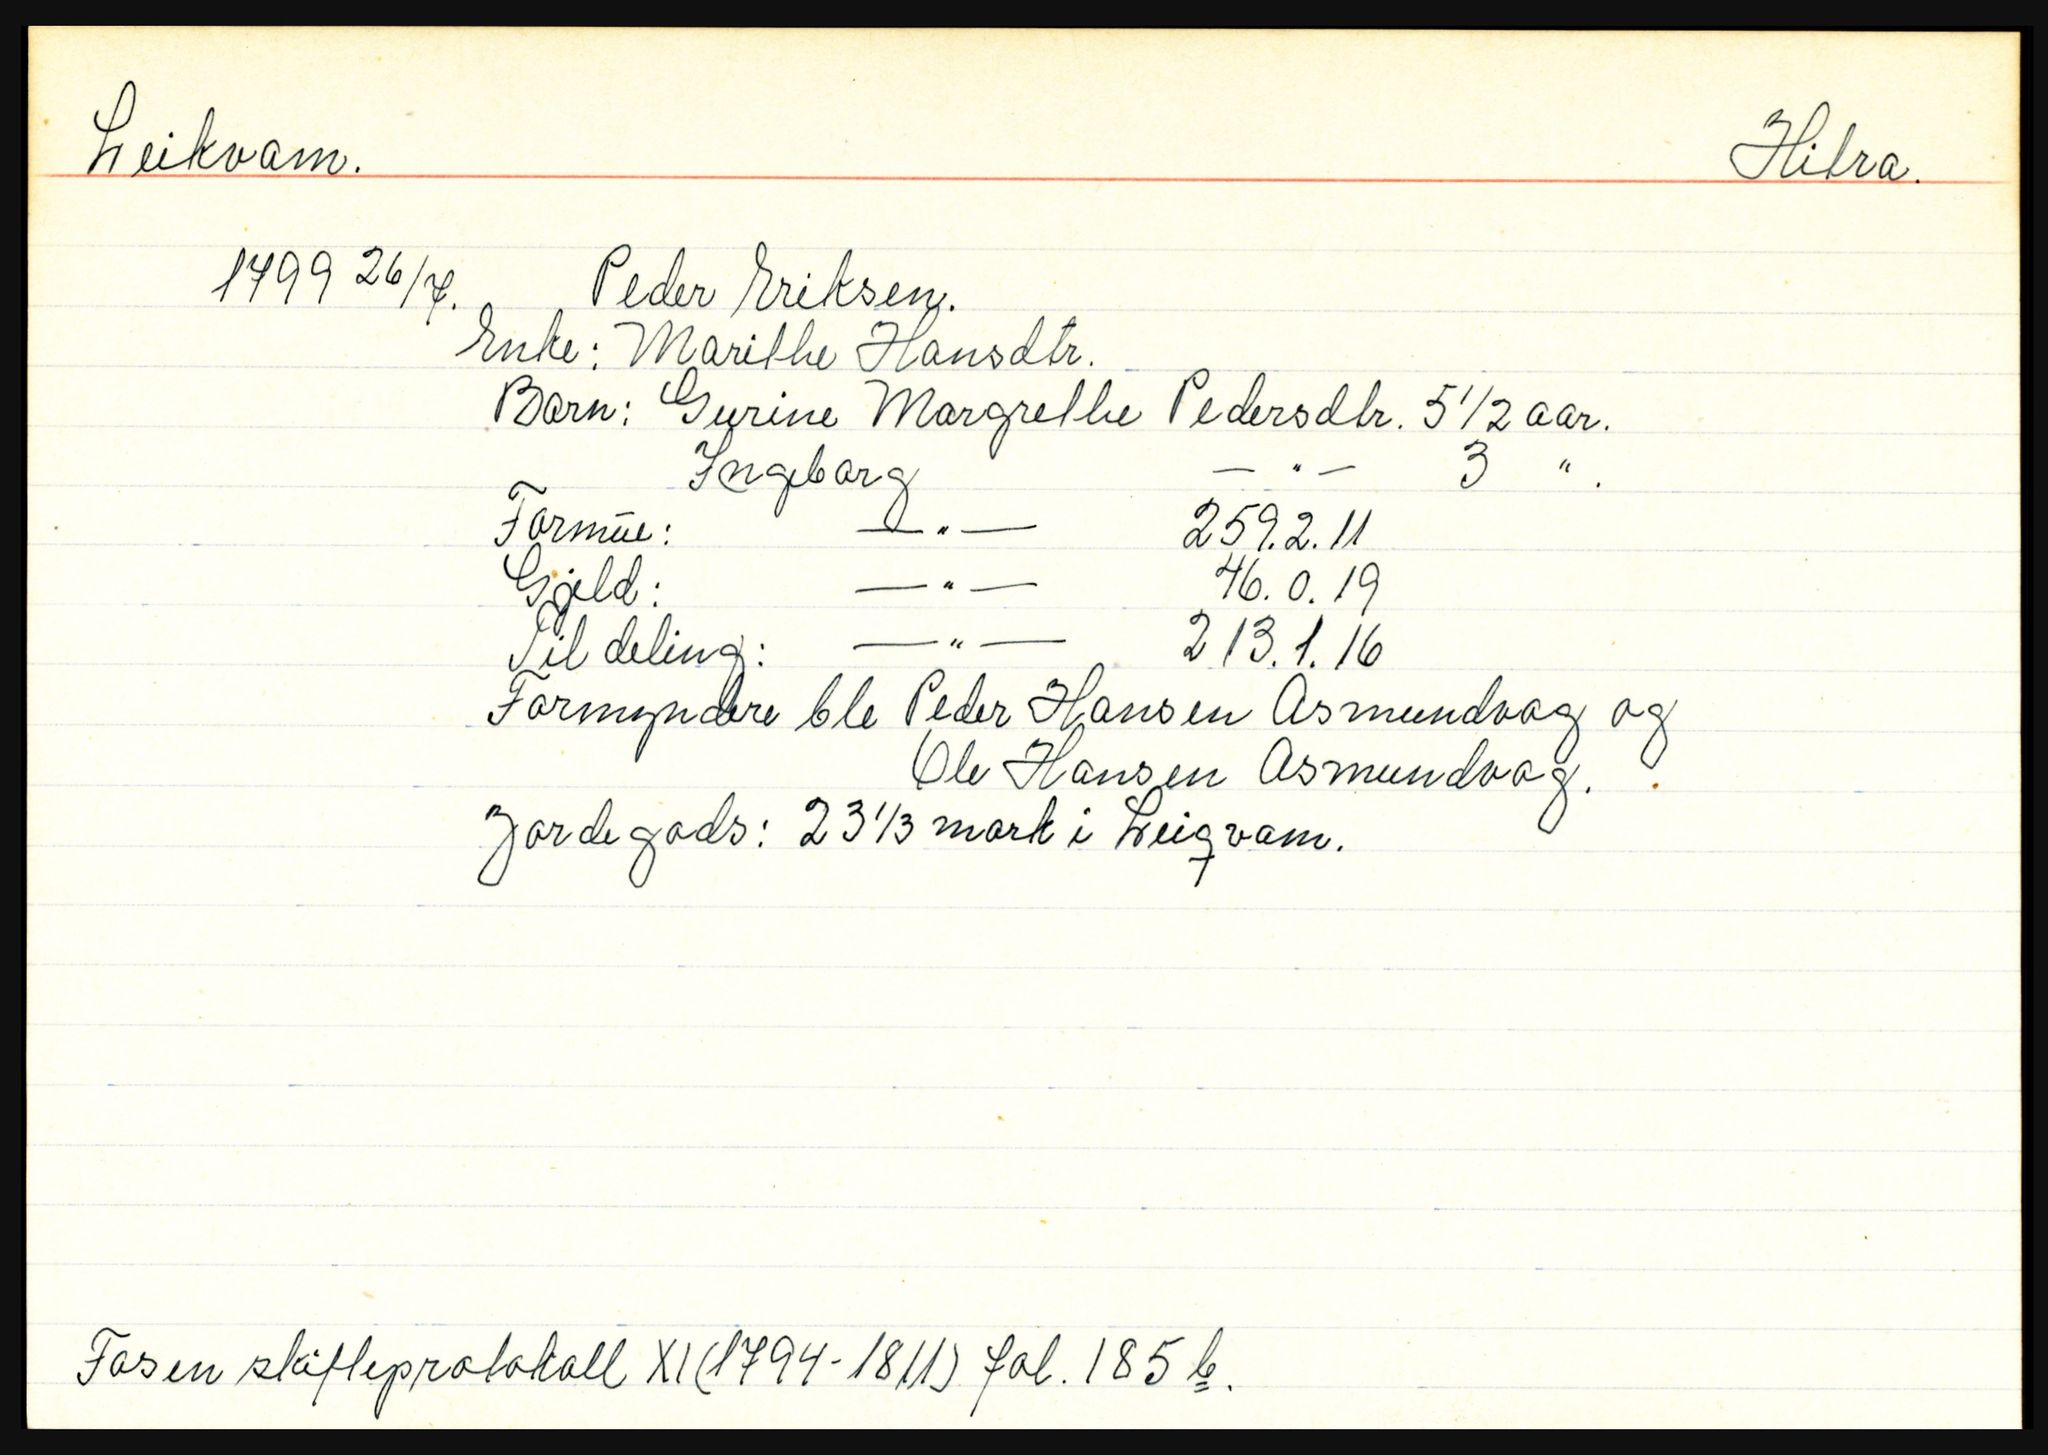 Leikvam. Hitra.
1799 26/7. Peder Eriksen.
Enke: Marithe Hansdtr.
Barn: Gurine Margrethe Pedersdtr. 5 1/2 aar.
Ingeborg — " — 3 " .
Formue: — " — 259.2.11
Gjeld: — " — 46.0.19
Til deling: — " — 213.1.16
Formyndere ble Peder Hansen Asmundvag og
Ole Hansen Asmundvag.
Jordegods: 23 1/3 mark i Leiqvam.
Fosen skifteprotokoll XI (1794-1811) fol. 185 b.